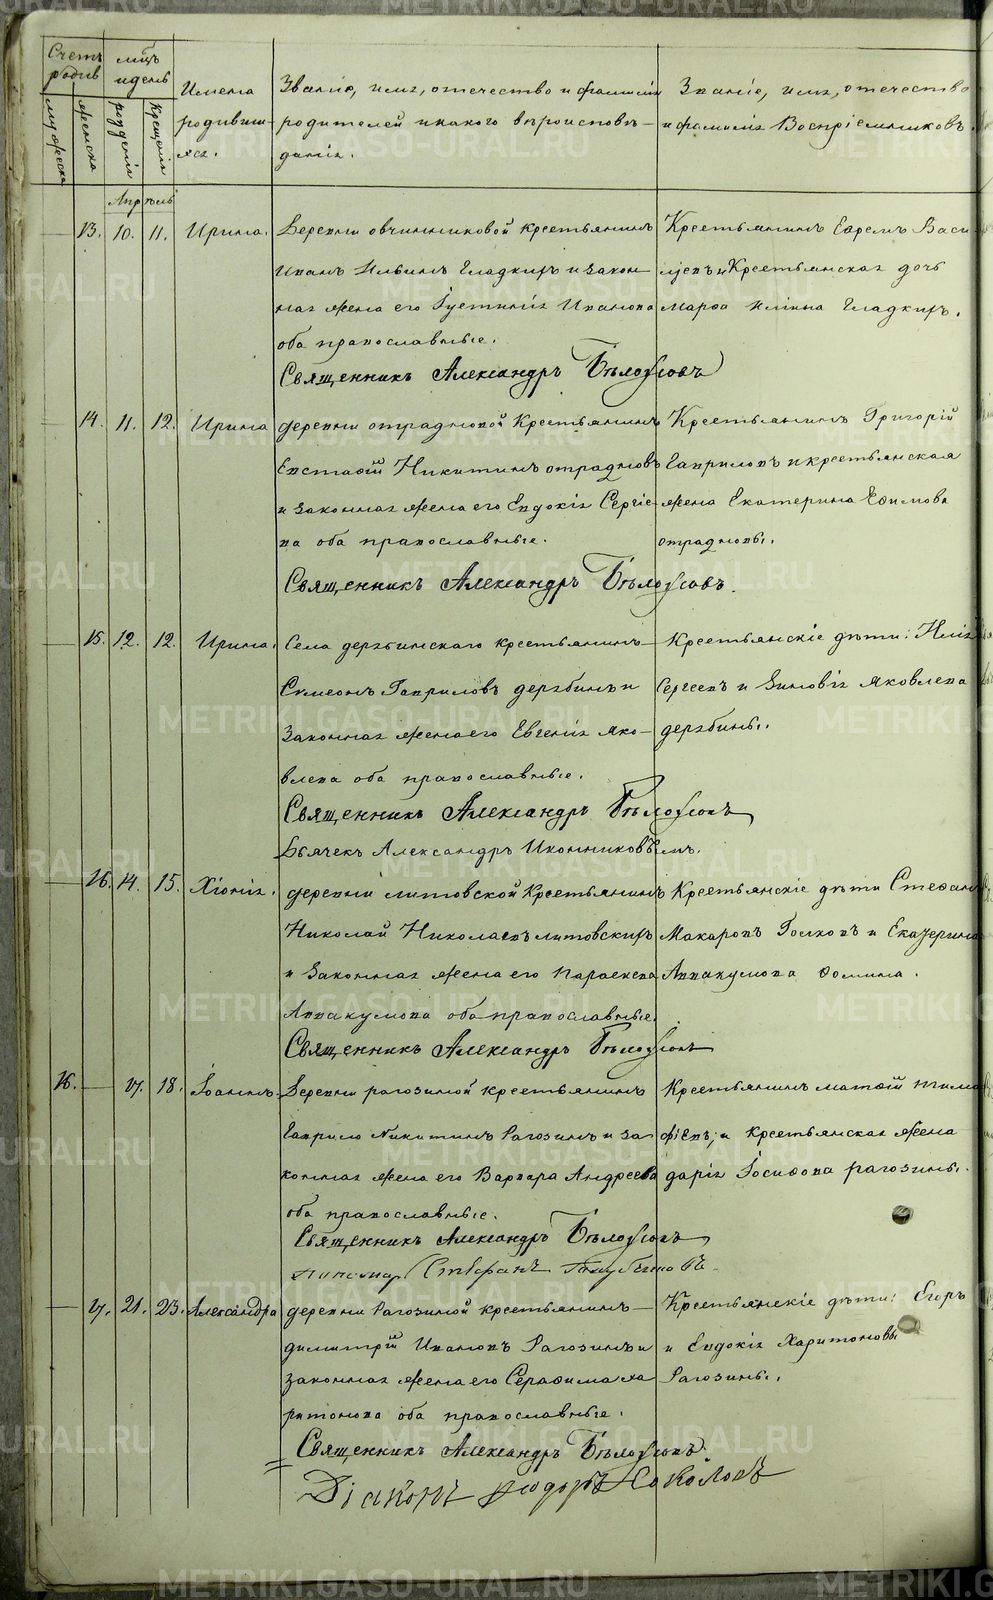 METRIKI.GASO-URAL.RU
Счетъ родив
мужеска
женска
мцъ и день
рожденія
крещенія
Имена родивш-
яся.
Званіе, имя, отечество и фамилія
родителей и какого вѣроисповѣ-
данія.
Званіе, имя, отечество
и фамилія Воспріемниковъ.
Апрель
13. 10. 11. Ирина. Деревни овчинниковой крестьянинъ
Иванъ Ильинъ Гладкихъ и закон
ная жена его Іустинія Иванова
оба православные.
Священникъ Александръ Бѣлоусовъ
Крестьянинъ Ефремъ Васи
льевъ и Крестьянская дочь
Марфа Ильина Гладкихъ.
14. 11. 12. Ирина деревни отрадновой Крестьянинъ
Евстафій Никитинъ отрадновъ
и законная жена его Евдокія Сергіе-
ва оба православные.
Священникъ Александръ Бѣлоусовъ.
Крестьянинъ Григорій
Гавриловъ и крестьянская
жена Екатерина Ефимова
отрадновы.
15. 12. 12. Ирина. Села дерябинскаго крестьянинъ
Симеонъ Гавриловъ дерябинъ и
законная жена его Евгенія Яко-
влева оба православные.
Священникъ Александръ Бѣлоусовъ
Дьячекъ Александръ Иконниковъ
Крестьянскіе дѣти: Илія
Сергеевъ и Зиновія Яковлева
дерябины.
16. 14. 15. Хіонія. деревни литовской Крестьянинъ
Николай Николаевъ литовскихъ
и законная жена его Параскева
Аввакумова оба православные.
Священникъ Александръ Бѣлоусовъ
Крестьянскіе дѣти Стефанъ
Макаровъ и Екатерина
Аввакумова Фомина.
16. 17. 18. Іоаннъ. Деревни рагозиной крестьянинъ
Гаврило Никитинъ Рагозинъ и за
конная жена его Варвара Андреева
оба православные.
Священникъ Александръ Бѣлоусовъ
пономарь Стефанъ
Крестьянинъ матфій тимо
фіевъ, и Крестьянская жена
дарія Іосифова рагозины.
17. 21. 23. Александра деревни Рагозиной крестьянинъ
димитрій Ивановъ Рагозинъ и
законная жена его Серафима ха
ритонова оба православные.
Священникъ Александръ Бѣлоусовъ.
Діаконъ Федоръ Соколовъ
Крестьянскіе дѣти: Егоръ
и Евдокія Харитоновы
Рагозины.